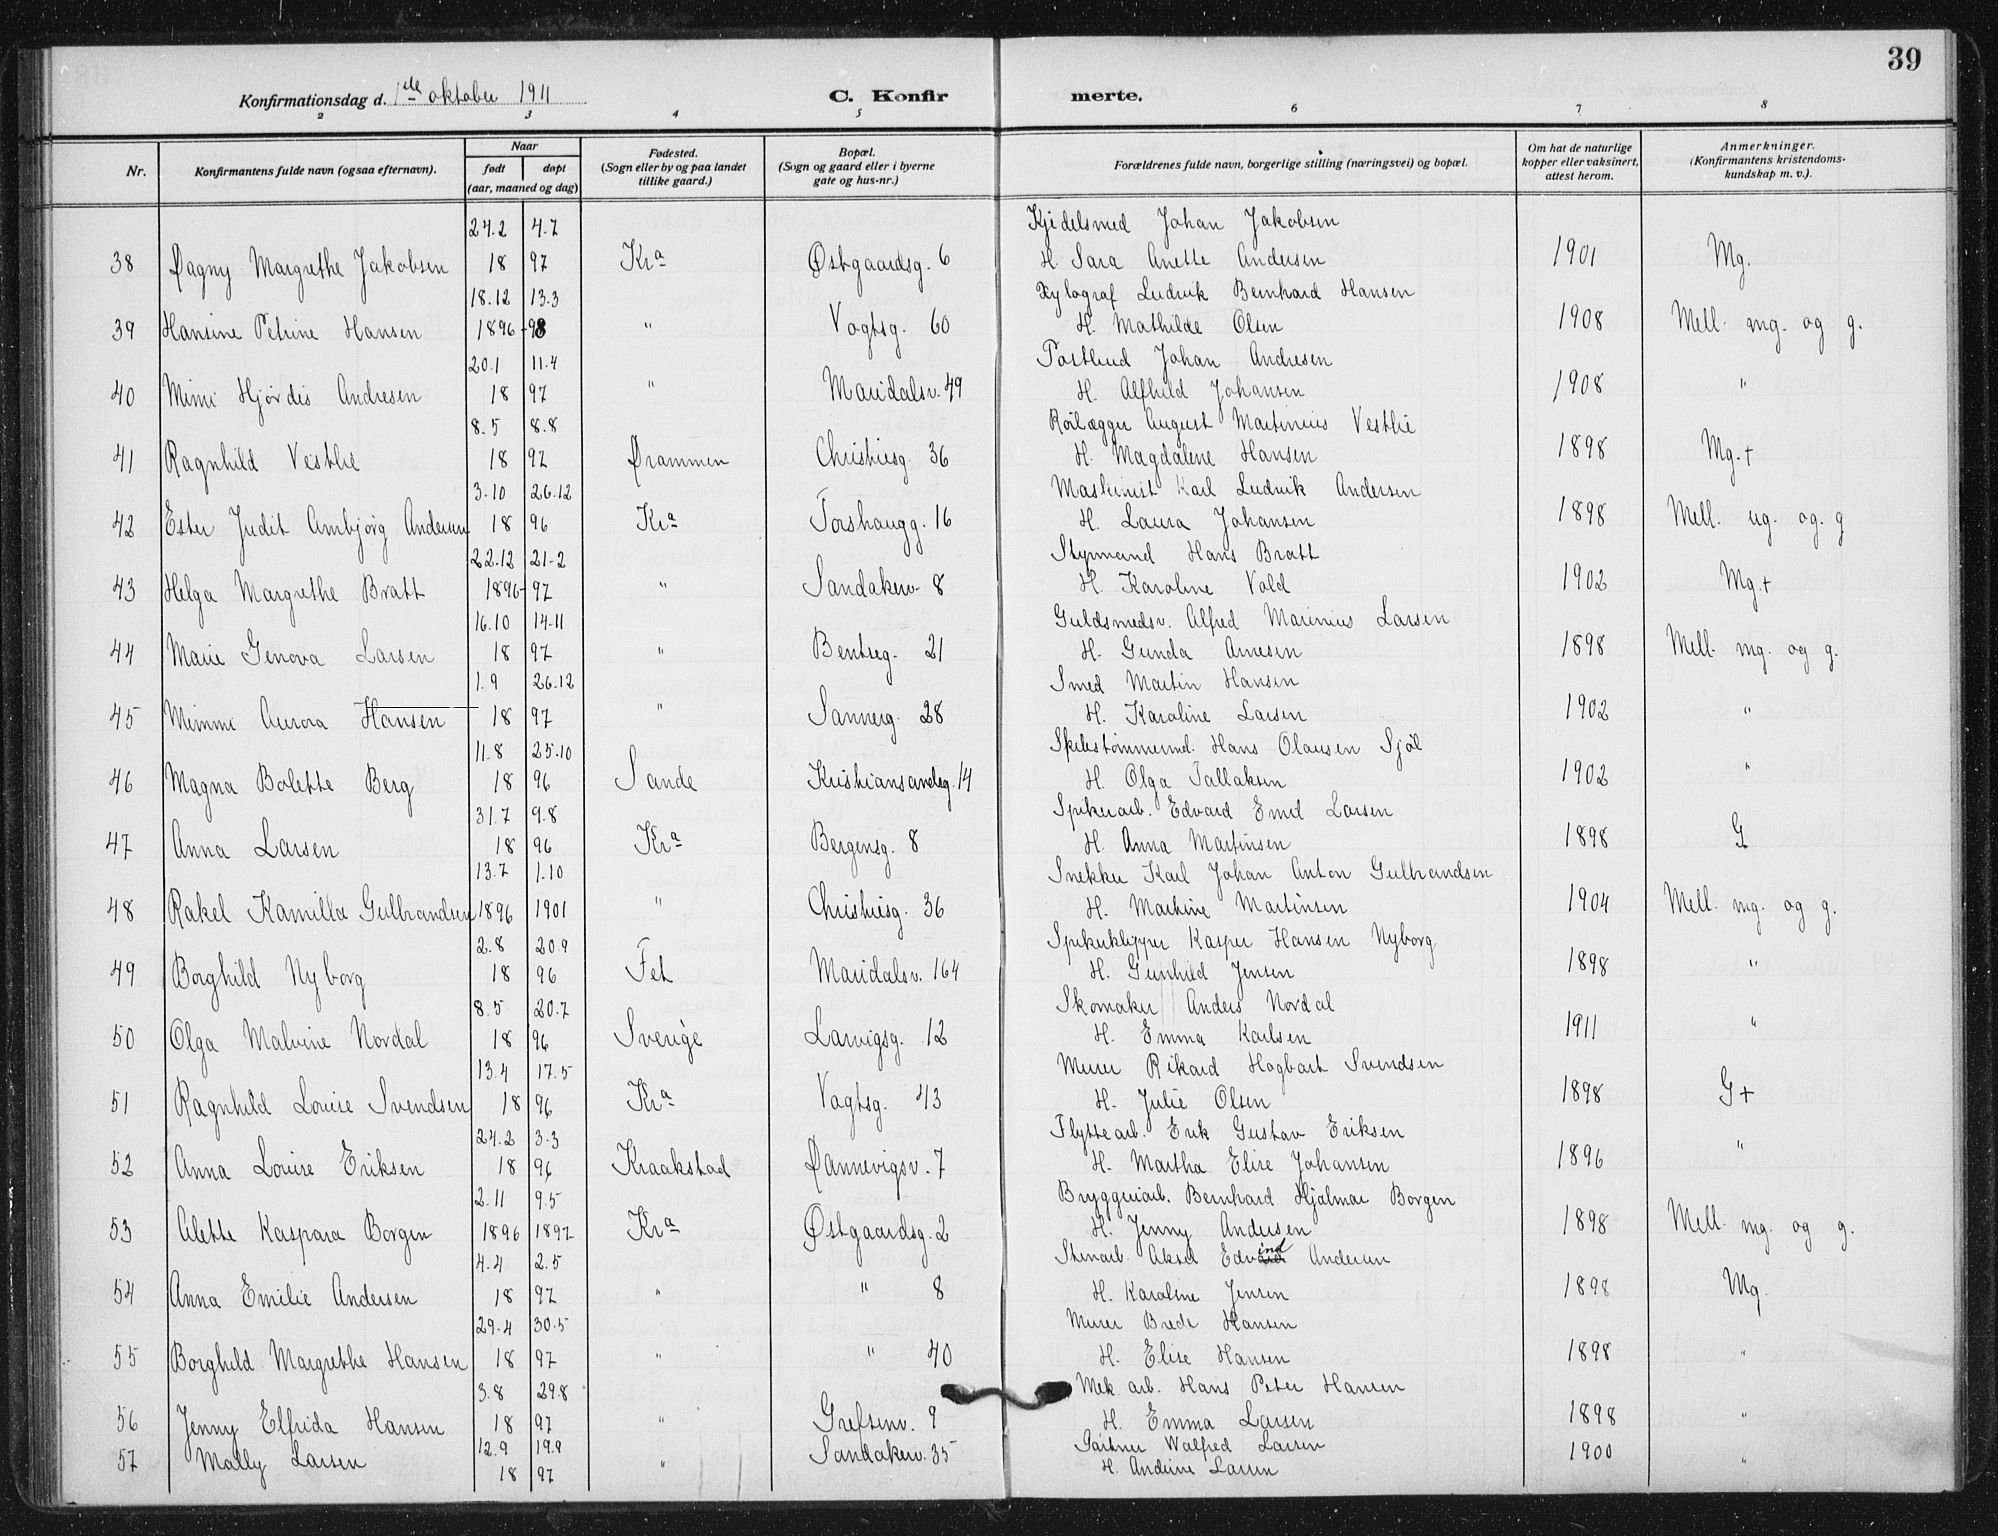 39
Konfirmationsdag d. 1ste oktober 1911
C. Konfir merte.
2 3 4 5 6 7 8
Nr. Konfirmantens fulde navn (ogsaa efternavn). Naar født døpt (aar, maaned og dag) Fødested. (Sogn eller by og paa landet tillike gaard.) Bopæl. (Sogn og gaard eller i byerne gate og hus-nr.) Forældrenes fulde navn, borgerlige stilling (næringsvei) og bopæl. Om hat de naturlige kopper eller vaksinert, attest herom. Anmerkninger. (Konfirmantens kristendoms-kundskap m. v.).
24.2 4.7 Kjedelsmed Johan Jakobsen
38 Dagny Margrethe Jakobsen 18 97 Kra Østgaardsg. 6 H. Sara Anette Andersen 1901 Mg.
18.12 13.3 Xylograf Ludvik Bernhard Hansen
39 Hansine Petrine Hansen 1896-98 " Vogtsg. 60 H. Mathilde Olsen 1908 Mell. mg. og g.
20.1 11.4 Postbud Johan Andresen
40 Mimi Hjørdis Andresen 18 97 " Maridalsv. 49 H. Alfhild Johansen 1908 "
8.5 8.8 Rørlægger August Martinius Vestlie
41 Ragnhild Vestlie 18 97 Drammen Christiesg. 36 H. Magdalene Hansen 1898 Mg.+
3.10 26.12 Maskinist Karl Ludvik Andersen
42 Ester Judit Ambjørg Andersen 18 96 Kra Torshaugg. 16 H. Laura Johansen 1898 Mell. mg. og. g
22.12 21-2 Styrmand Hans Bratt
43 Helga Margrethe Bratt 1896-97 " Sandakerv. 8 H. Karoline Vold 1902 Mg.+
16.10 14-11 Guldsmedsv. Alfred Marinius Larsen
44 Marie Genova Larsen 18 97 " Bentseg. 21 H. Gunda Arnesen 1898 Mell. mg. og g.
1.9 26.12 Smed Martin Hansen
45 Mimmi Aurora Hansen 18 97 " Sannerg. 28 H. Karoline Larsen 1902 "
11.8 25.10 Skibstømmermd. Hans Olausen Sjøl
46 Magna Bolette Berg 18 96 Sande Kristiansandsg. 14 H. Olga Tallaksen 1902 "
31.7 9.8 Spikerarb. Edvard Emil Larsen
47 Anna Larsen 18 96 Kra Bergensg. 8 H. Anna Martinsen 1898 G
13.7 1.10 Snekker Karl Johan Anton Gulbrandsen
48 Rakel Kamilla Gulbrandsen 1896 1901 " Christiesg. 36 H. Martine Martinsen 1904 Mell. mg. og g.
2.8 20.9 Spikerklipper Kasper Hansen Nyborg
49 Borghild Nyborg 18 96 Fet Maridalsv. 164 H. Gunhild Jensen 1898 "
8.5 20.7 Skomaker Anders Nordal
50 Olga Malvine Nordal 18 96 Sverige Larvigsg. 12 H. Emma Karlsen 1911 "
13.4 17.5 Murer Rikard Hagbart Svendsen
51 Ragnhild Louise Svendsen 18 96 Kra Vogtsg. 43 H. Julie Olsen 1898 G+
24.2 3.3 Flyttearb. Erik Gustav Eriksen
52 Anna Louise Eriksen 18 96 Kraakstad Dannevigsv. 7 H. Martha Elise Johansen 1896 "
2.11 9.5 Bryggeriarb. Bernhard Hjalmar Borgen
53 Alette Kaspara Borgen 1896 1897 Kra Østgaardsg. 2 H. Jenny Andersen 1898 Mell. mg. og g.
4.4 2.5 Stenarb. Aksel Edvind Andersen
54 Anna Emilie Andersen 18 97 " " 8 H. Karoline Jensen 1898 Mg.
29.4 30.5 Murer Brede Hansen
55 Borghild Margrethe Hansen 18 97 " " 40 H. Elise Hansen 1898 "
3.8 29.8 Mek. arb. Hans Peter Hansen
56 Jenny Elfrida Hansen 18 97 " Grefsenv. 9 H. Emma Larsen 1898 "
12.9 19.9 Gartner Walfred Larsen
57 Mally Larsen 18 97 " Sandakerv. 35 H. Andrine Larsen 1900 "